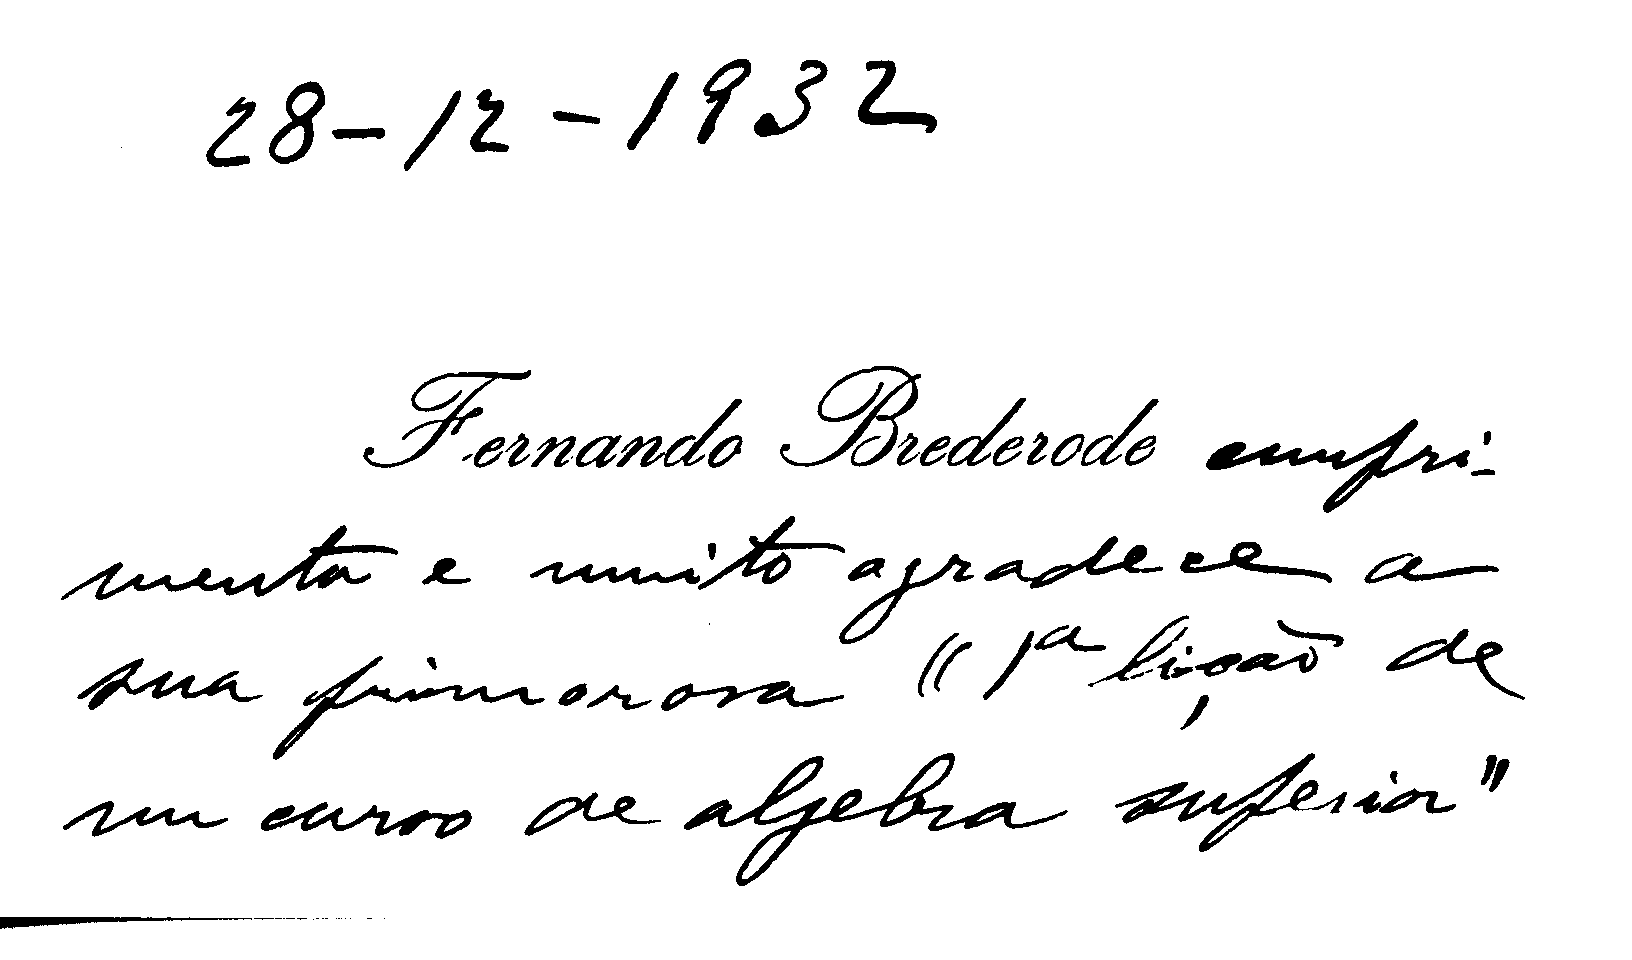 28-12-1932
Fernando Brederode cumpri-
menta e muito agradece a
sua primorosa "1ª lição de
um curso de algebra superior"